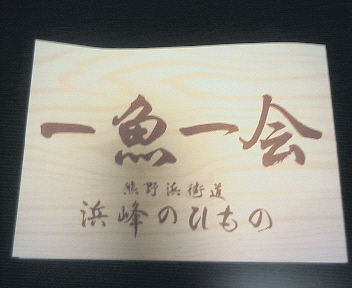 一魚一会
熊野浜街道
浜峰のひもの